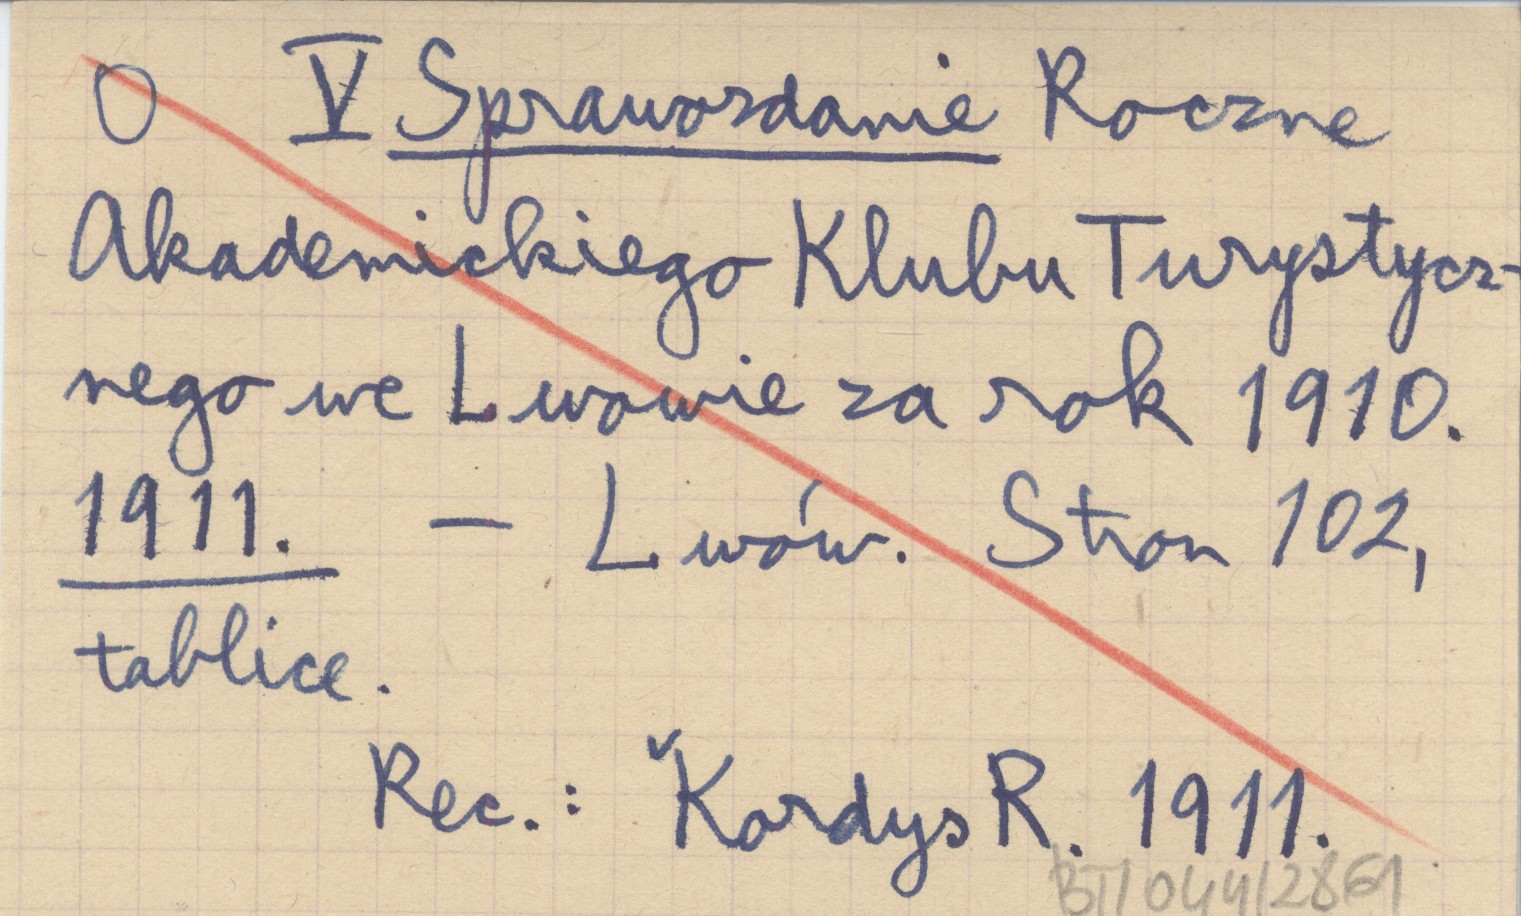 O V Sprawozdanie Roczne
Akademickiego Klubu Turystycz-
nego we Lwowie za rok 1910.
1911. — Lwów. Stron 102,
tablice.
Rec.: ˇKordys R. 1911.
BT/044/2861